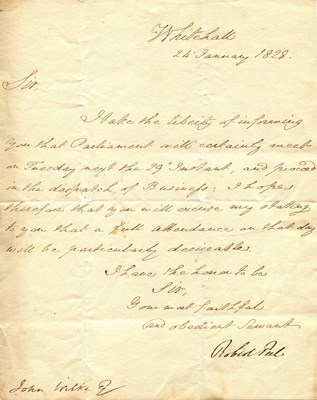 Whitehall
24 January 1828.
Sir.
I take the liberty of informing
you that Parliament will certainly meet
on Tuesday next the 29 Instant, and proceed
in the despatch of Business: I hope
therefore that you will excuse my stating
to you that a full attendance on that day
will be particularly desireable.
I have the honor to be
Sir,
Your most faithful
and obedient Servant
Robert Peel
John